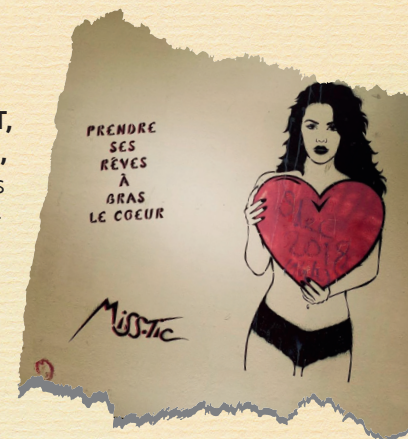 T,
,
s
PRENDRE
SES
RÊVES
À
BRAS
LE COEUR
MISS.TIC
2018